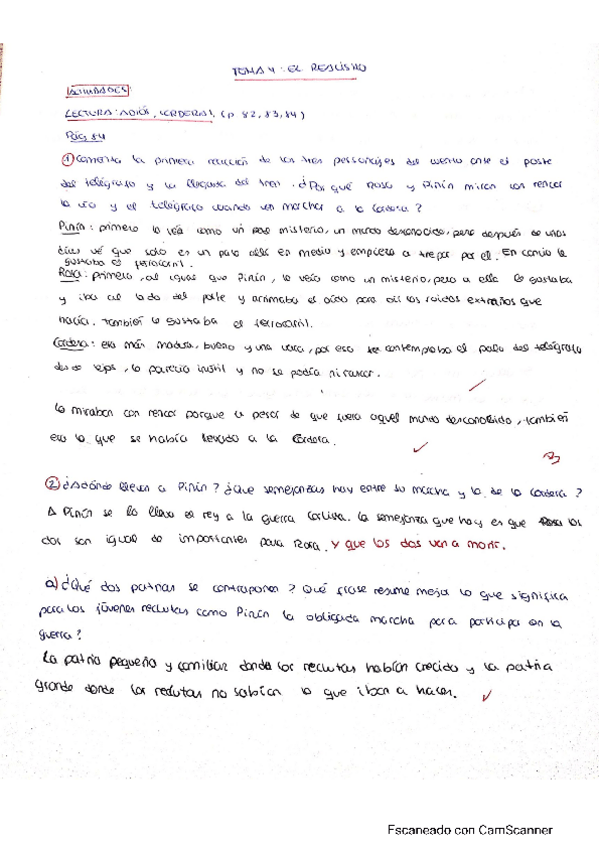 TEMA 4: EL REALISMO
ACTIVIDADES
LECTURA: ADIÓS, CORDERA!, (p 82, 83, 84)
Pág 84
① Comenta la primera reacción de los tres personajes del cuento ante el poste
del telégrafo y la llegada del tren. ¿Por qué Rosa y Pinín miran con rencor
la vía y el telégrafo cuando ven marchar a la Cordera?
Pinín: primero lo veía como un palo misterio, un mundo desconocido, pero después de unos
días vé que solo es un palo allí en medio y empieza a trepar por el. En cambio le
gustaba el ferrocarril.
Rosa: primero, al igual que Pinín, lo veía como un misterio, pero a ella le gustaba
y iba al lado del poste y arrimaba el oído para oír los ruidos extraños que
hacía. También le gustaba el ferrocarril.
Cordera: era más madura, bueno y una vaca, por eso contemplaba el palo del telégrafo
desde lejos, le parecía inútil y no se podía ni rascar.
Lo miraban con rencor porque a pesar de que fuera aquel mundo desconocido, también
era lo que se había llevado a la Cordera.
② ¿Adónde llevan a Pinín? ¿Qué semejanzas hay entre su marcha y la de la Cordera?
A Pinín se lo lleva el rey a la guerra carlista. La semejanza que hay es que los
dos son igual de importantes para Rosa. y que los dos van a morir.
a) ¿Qué dos patrias se contraponen? Qué frase resume mejor lo que significa
para los jóvenes reclutas como Pinín la obligada marcha para participa en la
guerra?
La patria pequeña y familiar donde los reclutas habían crecido y la patria
grande donde los reclutas no sabían lo que iban a hacer.
Escaneado con CamScanner